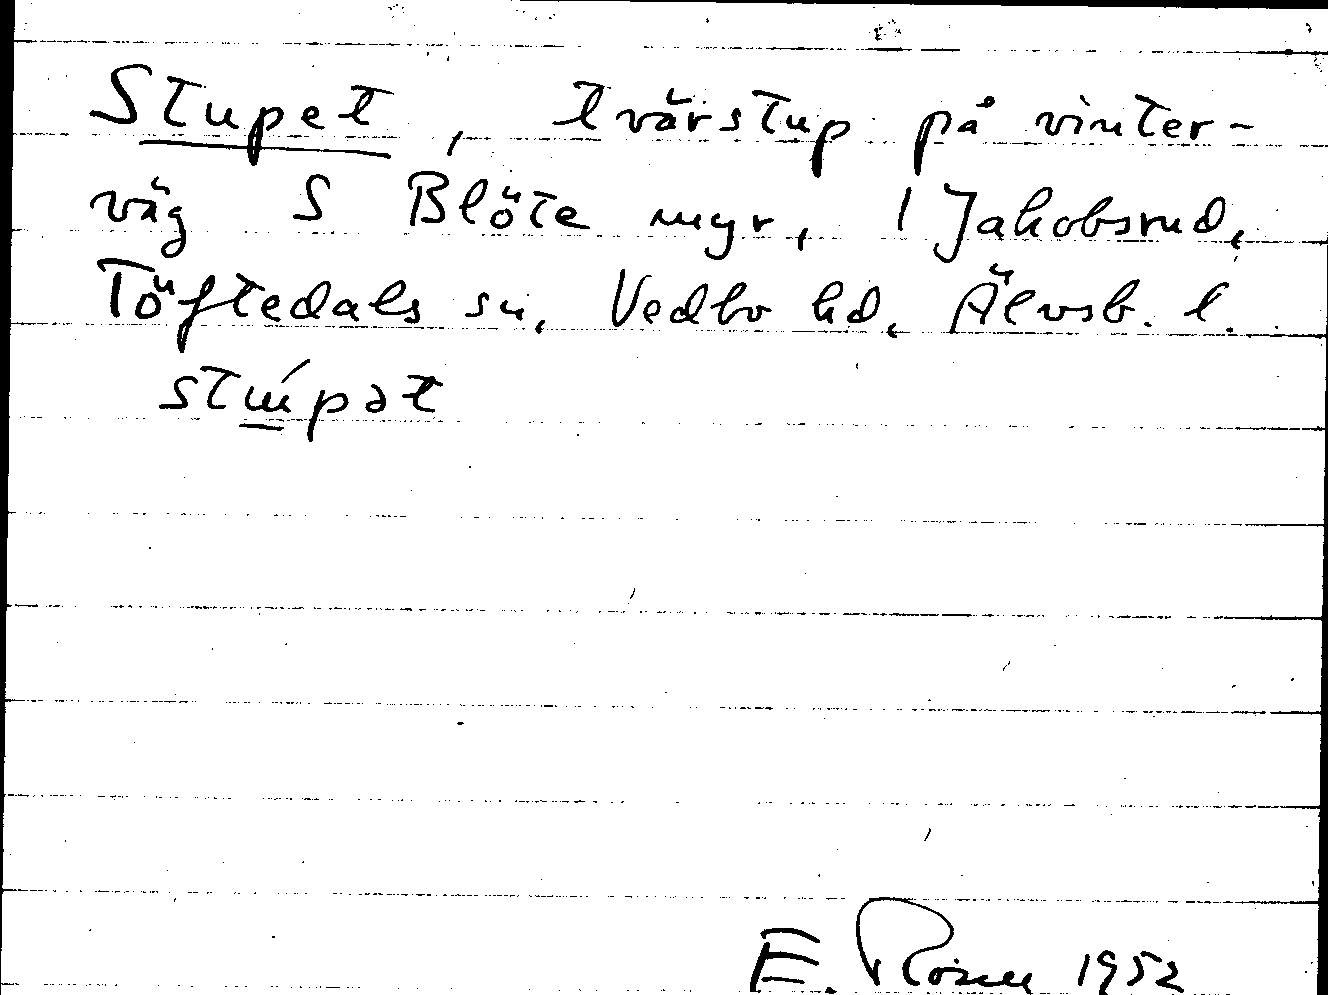 Stupet, tvärstup på vinter-
väg S Blöte myr, 1 Jakobsrud,
Töftedals sn, Vedbo hd, Älvsb. l.
stɯ́pət
E. Rosell 1952